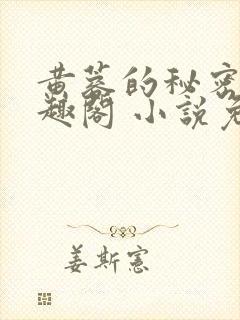 黄蓉的秘密
趣阁 小说免
姜斯宪